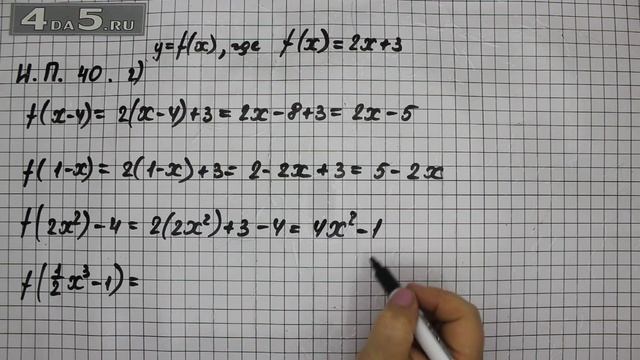 4DA5.RU
y=f(x), где f(x)=2x+3
Н.П. 40. 2)
f(x-4)= 2(x-4)+3=2x-8+3=2x-5
f(1-x)= 2(1-x)+3= 2-2x+3= 5-2x
f(2x²)-4= 2(2x²)+3-4= 4x²-1
f(1/2 x³-1)=